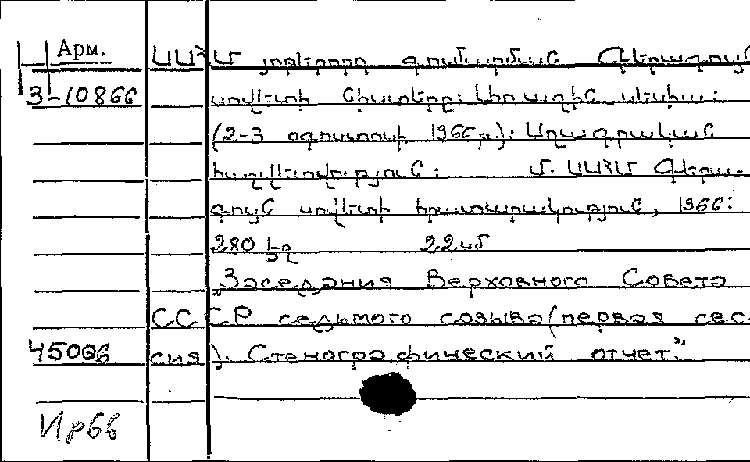 Арм.
ՍՍՀՄ յոթերորդ գումարման Գերագույն
3-10866
սովետի նիստերը: Առաջին սեսիա:
(2-3 օգոստոսի 1966թ.): Սղագրական
հաշվետվություն: Մ. ՍՍՀՄ Գերա-
գույն սովետի հրատարակություն, 1966:
280 էջ 22սմ
„Заседания Верховного Совета
СССР седьмого созыва (первая сес-
45066 сия). Стенографический отчет."
Ирбв